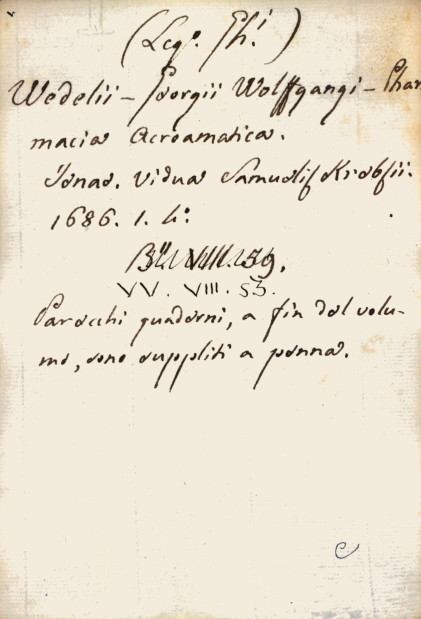 (Leg.º Ph.i)
Wedelii - Georgii Wolffgangi - Phar
macia Acroamatica.
Jenae. Vidua Samuelis Krebsii.
1686. 1. 4.º
VV. VIII. 53.
Parecchi quaderni, a fin del volu-
me, sono suppliti a penna.